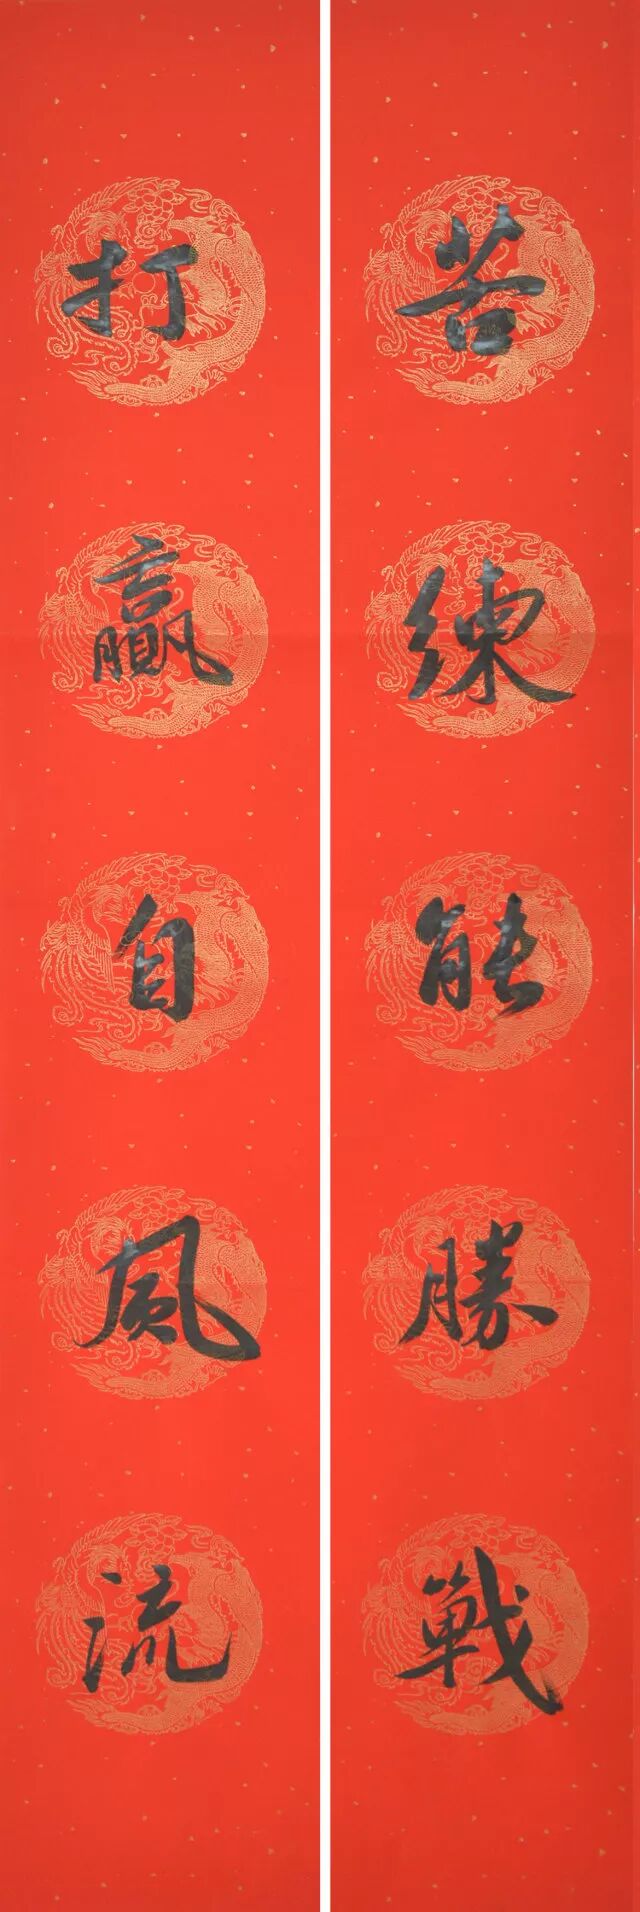 苦練能勝戰
打贏自風流